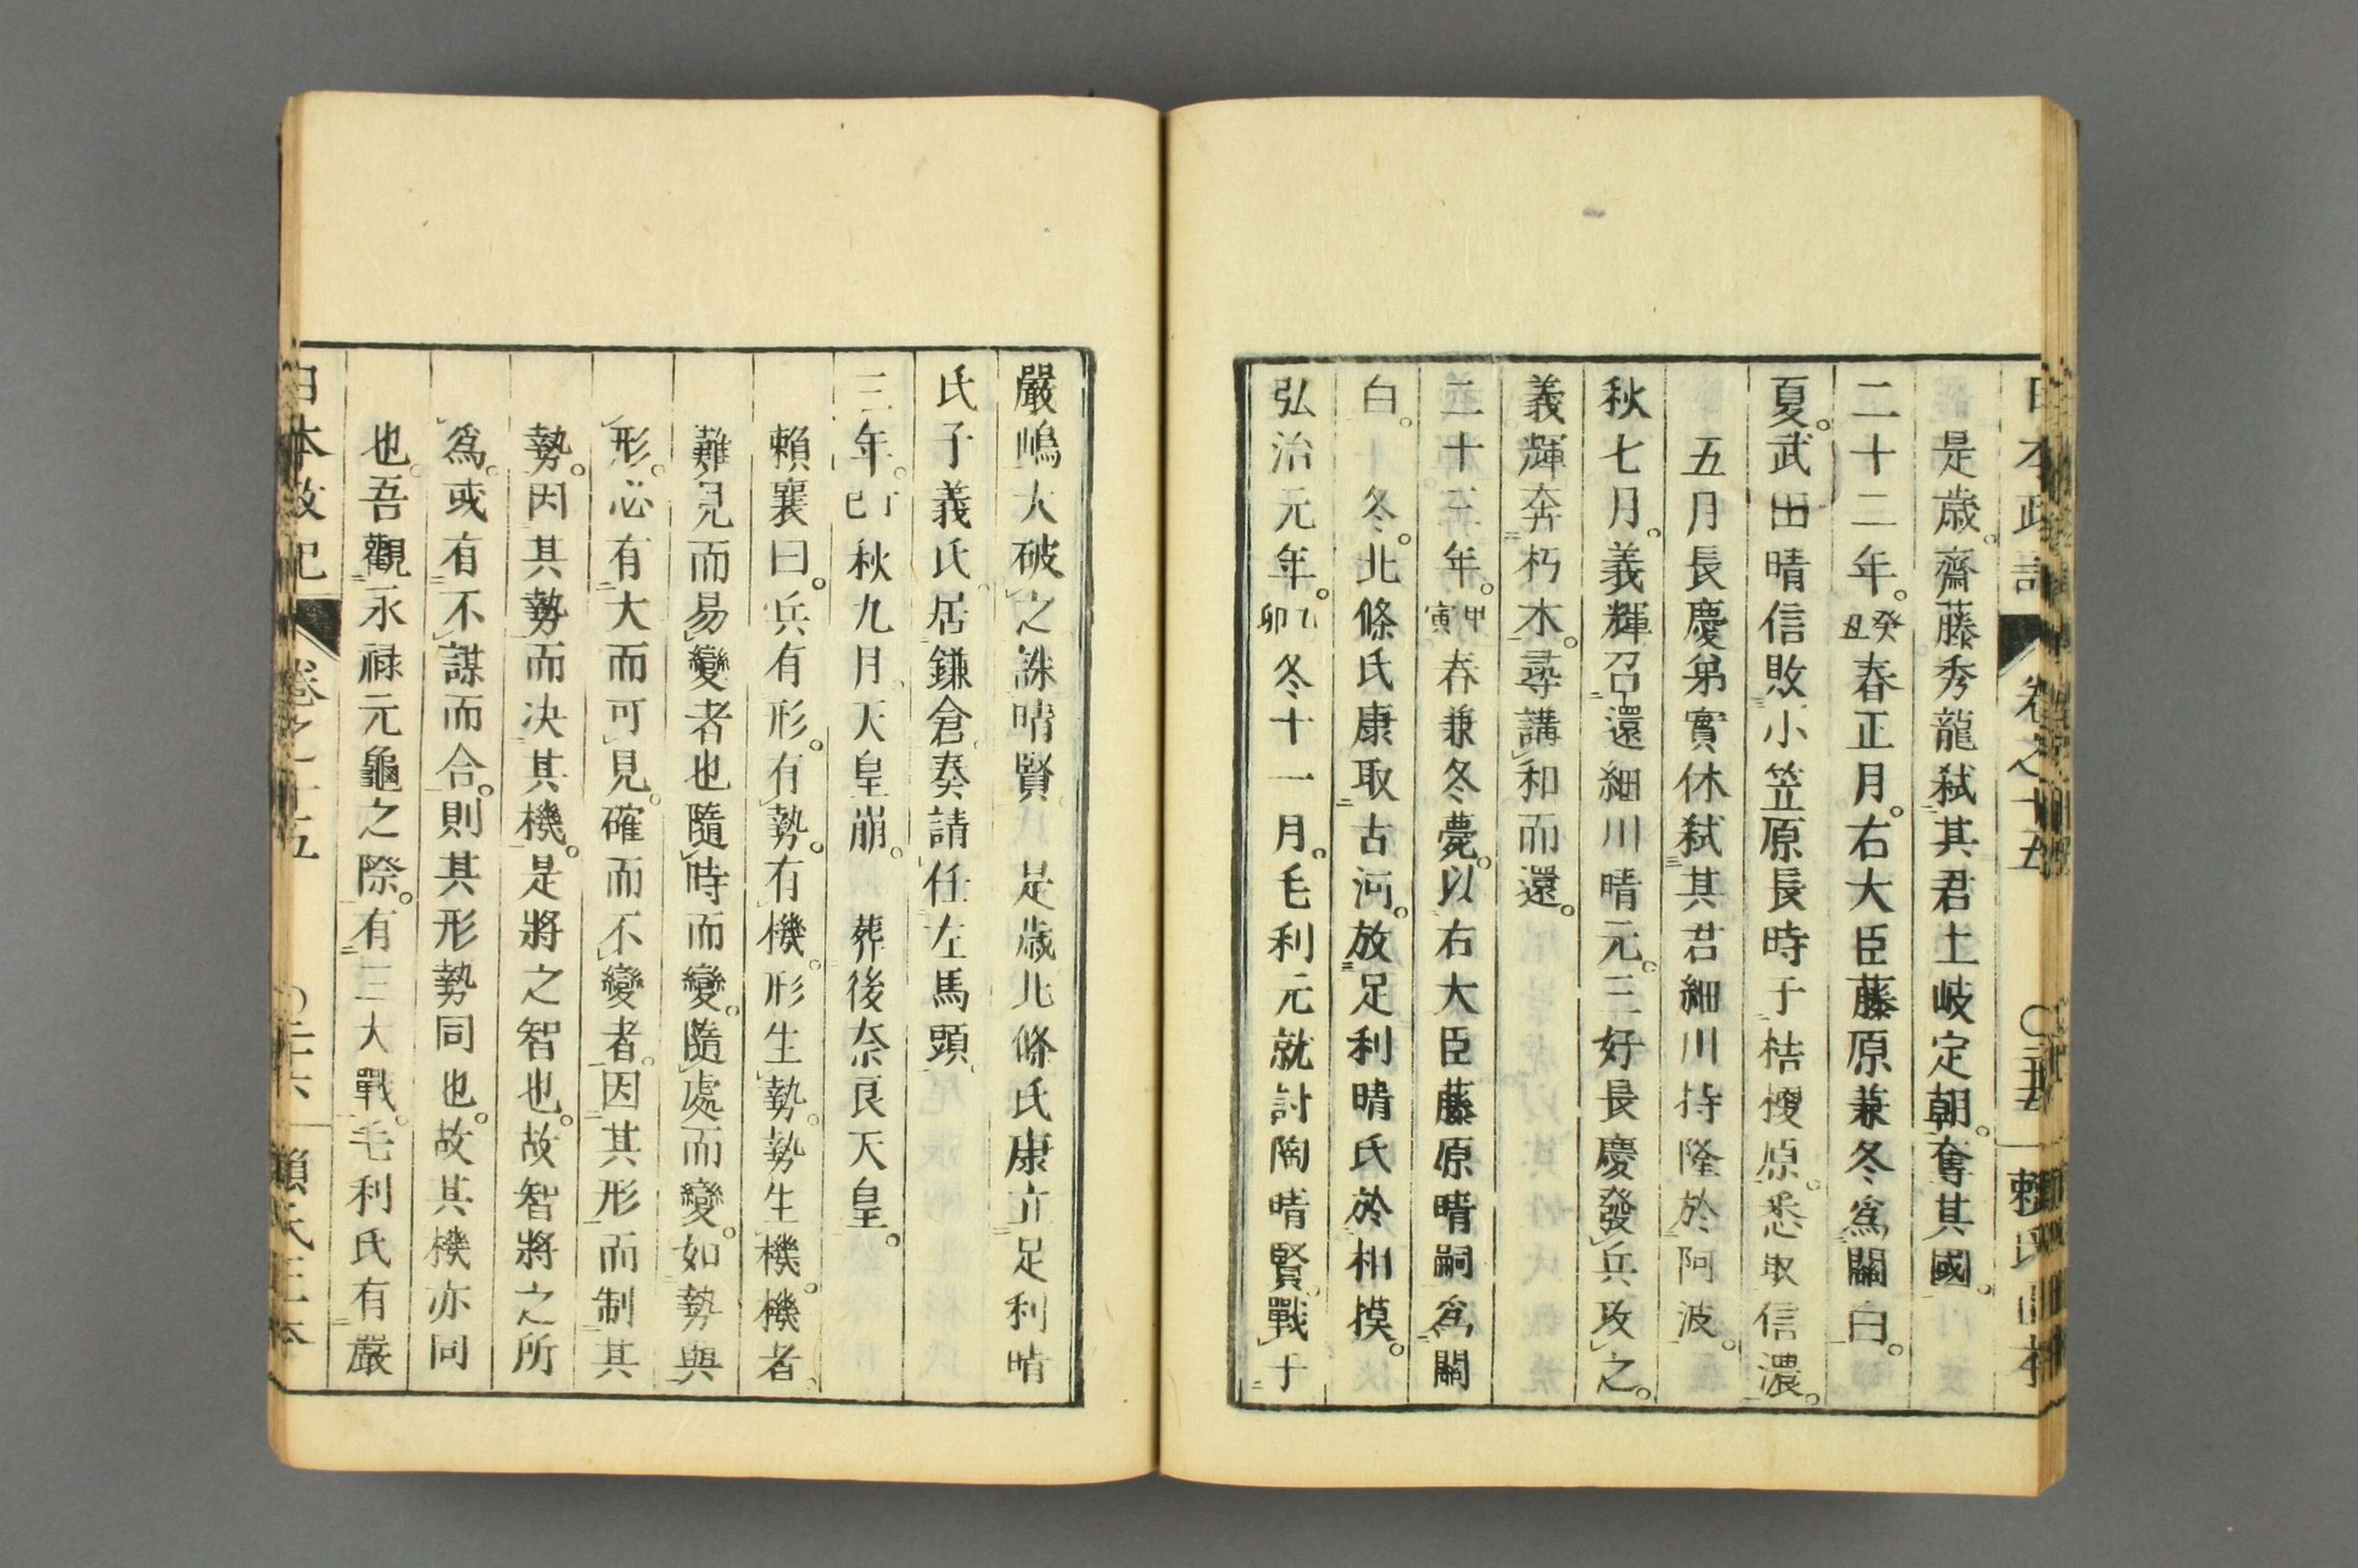 日本政記 卷之十五 〇二十五 賴氏正本
是歳。齋藤秀龍弑其君土岐定朝。奪其國。
二十二年。癸丑春正月。右大臣藤原兼冬爲關白。
夏。武田晴信敗小笠原長時于桔梗原。悉取信濃。
五月長慶弟實休弑其君細川持隆於阿波。
秋七月。義輝召還細川晴元。三好長慶發兵攻之。
義輝奔朽木。尋講和而還。
二十三年。甲寅春兼冬薨。以右大臣藤原晴嗣爲關
白。冬。北條氏康取古河。放足利晴氏於相摸。
弘治元年。乙卯冬十一月。毛利元就討陶晴賢。戰于
嚴嶋大破之誅晴賢 是歳北條氏康立足利晴
氏子義氏。居鎌倉。奏請任左馬頭
三年。丁巳秋九月。天皇崩。 葬後奈良天皇。
賴襄曰。兵有形。有勢。有機。形生勢。勢生機。機者
難見而易變者也隨時而變。隨處而變。如勢與
形。必有大而可見。確而不變者。因其形而制其
勢。因其勢而决其機。是將之智也。故智將之所
爲。或有不謀而合。則其形勢同也。故其機亦同
也。吾觀永禄元龜之際。有三大戰。毛利氏有嚴
日本政記 卷之十五 〇二十六 賴氏正本